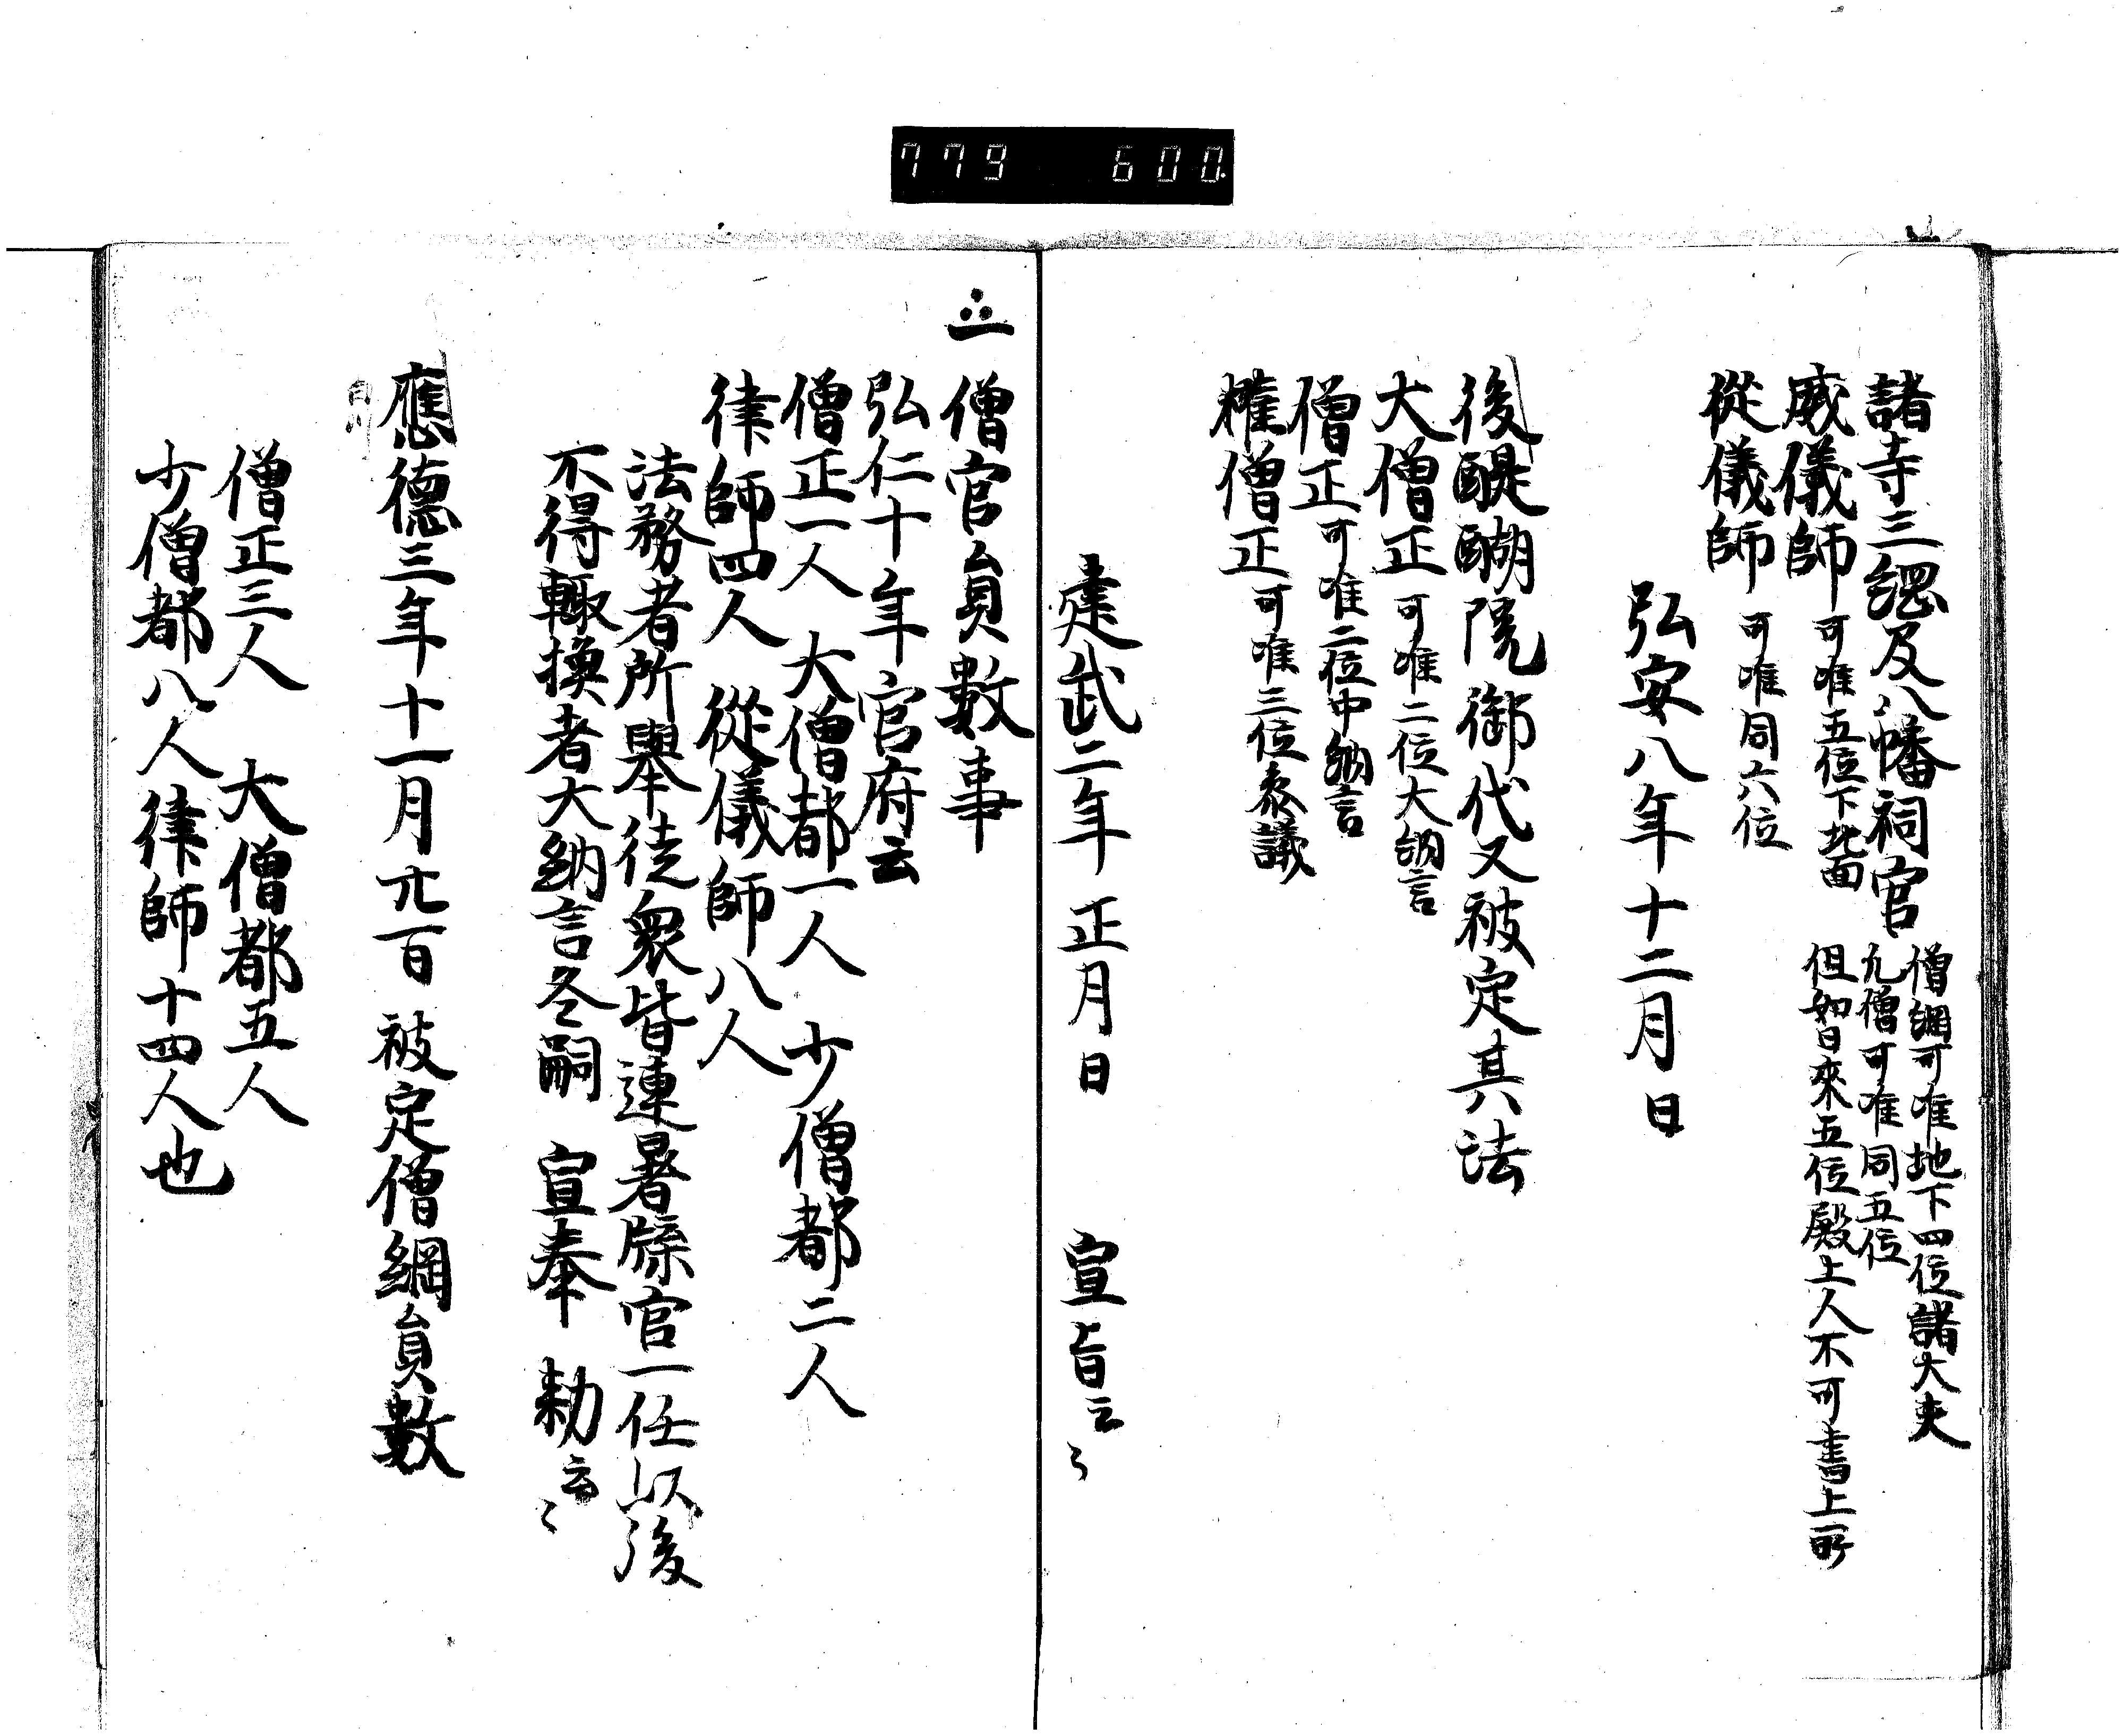 779 600.
諸寺三綱及八幡祠官
僧綱可准地下四位諸大夫
凡僧可准同五位
但如日来五位殿上人不可書上所
威儀師可准五位下北面
從儀師可准同六位
弘安八年十二月日
後醍醐院御代又被定其法
大僧正可准二位大納言
僧正可准二位中納言
權僧正可准三位参議
建武二年正月日 宣旨云々
一 僧官員數事
弘仁十年官府云
僧正一人 大僧都一人 少僧都二人
律師四人 從儀師八人
法務者所舉徒衆皆連署牒官一任以後
不得輙換者大納言冬嗣 宣奉 勅云々
應德三年十一月 被定僧綱員數
僧正三人 大僧都五人
少僧都八人律師十四人也